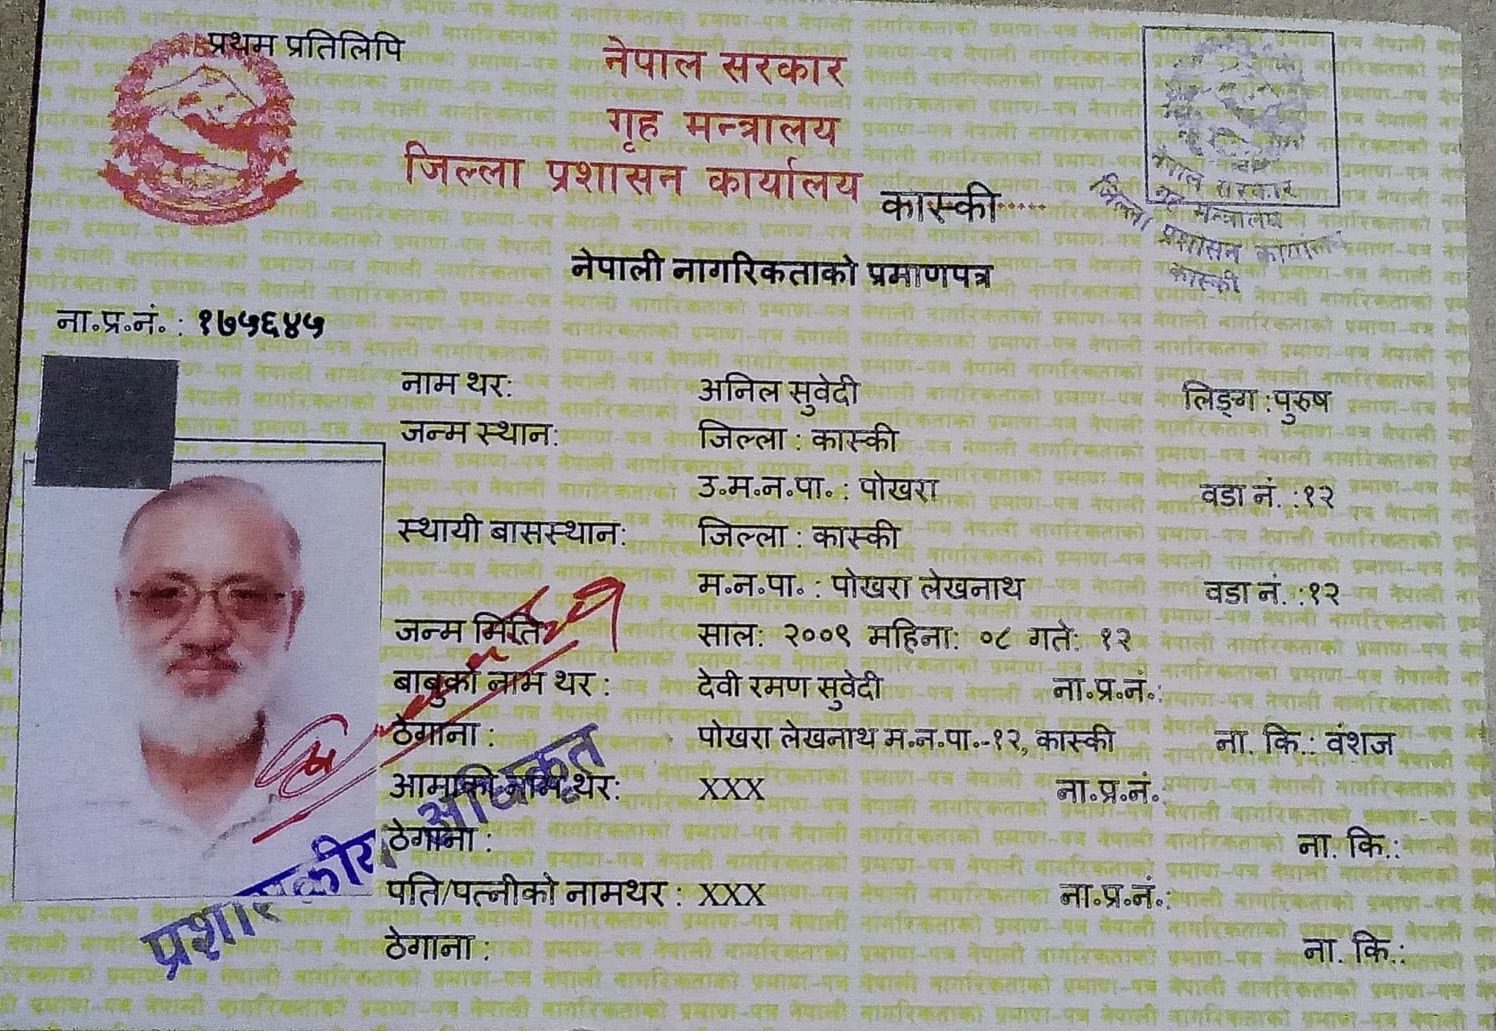 प्रथम प्रतिलिपि
नेपाल सरकार
गृह मन्त्रालय
जिल्ला प्रशासन कार्यालय कास्की
नेपाल सरकार
गृह मन्त्रालय
जिल्ला प्रशासन कार्यालय
कास्की
नेपाली नागरिकताको प्रमाणपत्र
ना.प्र.नं. : १७५६४५
नाम थर: अनिल सुवेदी लिङ्ग : पुरुष
जन्म स्थान: जिल्ला : कास्की
उ.म.न.पा. : पोखरा वडा नं. : १२
स्थायी बासस्थान: जिल्ला : कास्की
म.न.पा. : पोखरा लेखनाथ वडा नं. : १२
जन्म मिति: साल: २००९ महिना: ०८ गते: १२
बाबुको नाम थर : देवी रमण सुवेदी ना.प्र.नं.:
ठेगाना : पोखरा लेखनाथ म.न.पा.-१२, कास्की ना. कि.: वंशज
आमाको नाम थर: XXX ना.प्र.नं.
ठेगाना : ना. कि.:
पति/पत्नीको नामथर : XXX ना.प्र.नं.:
ठेगाना : ना. कि.:
प्रशासकीय अधिकृत